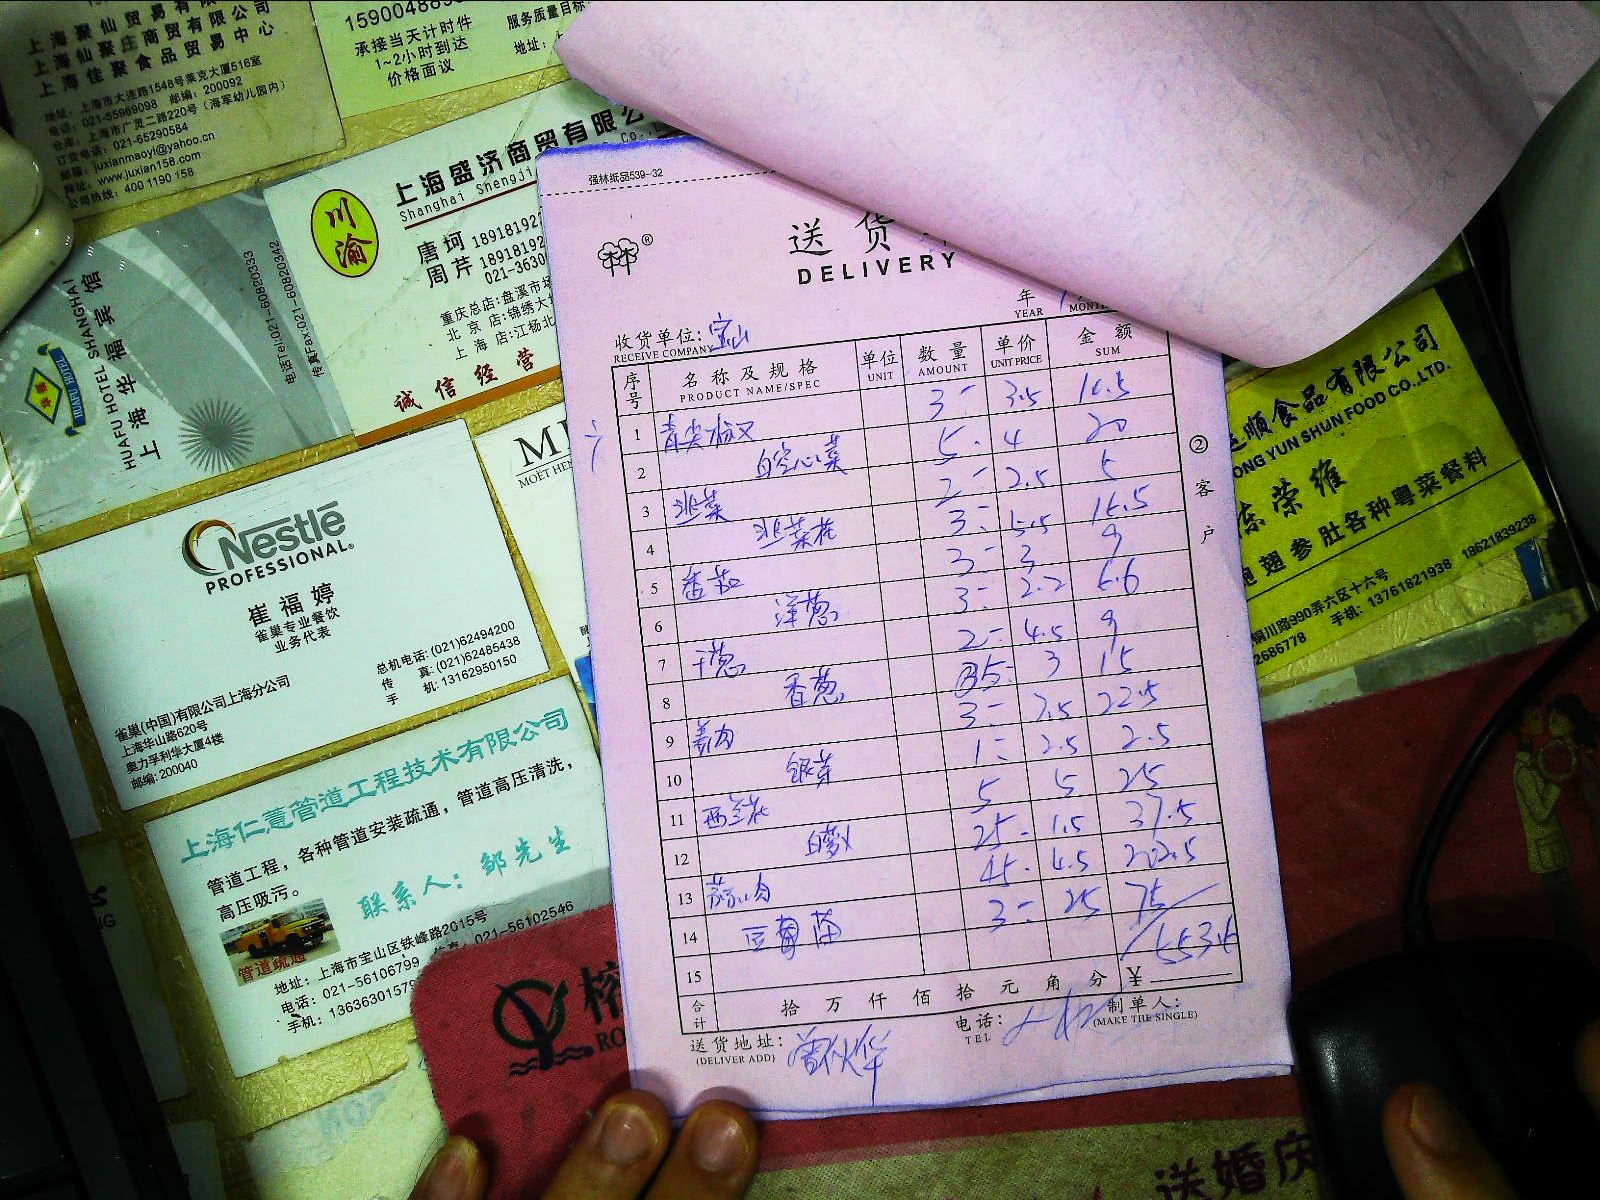 上海聚仙贸易有限公司
上海仙聚庄商贸有限公司
上海佳聚食品贸易中心
地址：上海市大连路1548号莱克大厦516室
电话：021-55969098 邮编：200092
仓库：上海市广灵二路220号（海军幼儿园内）
订货电话：021-65290584
邮箱：juxianmaoyi@yahoo.cn
网址：www.juxian158.com
公司热线：400 1190 158
承接当天计时件
1~2小时到达
价格面议
服务质量目标
地址：
川渝
上海盛济商贸有限公
Shanghai Shengji
唐珂
周芹
021-3630
重庆总店：盘溪市场
北京店：锦绣大
上海店：江杨北
诚信经营
上海华福宾馆
HUAFU HOTEL SHANGHAI
HUAFU HOTEL
电话Tel:021-60820333
传真Fax:021-60820342
Nestlé
PROFESSIONAL
崔福婷
雀巢专业餐饮
业务代表
总机电话：(021)62494200
传 真：(021)62485438
手 机：13162950150
雀巢(中国)有限公司上海分公司
上海华山路620号
奥力孚利华大厦4楼
邮编：200040
MOËT HEN
上海仁薏管道工程技术有限公司
管道工程，各种管道安装疏通，管道高压清洗，
高压吸污。
联系人：邹先生
管道疏通
地址：上海市宝山区铁峰路2015号
电话：021-56106799 传真：021-56102546
手机：1363630157
强林纸品539-32
送货
DELIVERY
年
YEAR
收货单位：宝山
RECEIVE COMPANY
序号 名称及规格 单位 数量 单价 金额
PRODUCT NAME/SPEC UNIT AMOUNT UNIT PRICE SUM
1 青尖椒 3 3.5 10.5
2 白空心菜 5 4 20
3 韭菜 2 2.5 5
4 韭菜花 3 5.5 16.5
5 番茄 3 3 9
6 洋葱 3 2.2 6.6
7 干葱 2 4.5 9
8 香葱 5 3 15
9 姜肉 3 7.5 22.5
10 银芽 1 2.5 2.5
11 西兰花 5 5 25
12 白萝卜 25 1.5 37.5
13 蒜肉 45 4.5 202.5
14 豆苗 3 25 75
15 553.6
合计 拾万仟佰拾元角分 ¥
送货地址：
(DELIVER ADD)
电话：
TEL
制单人：
(MAKE THE SINGLE)
②客户
顺食品有限公司
ONG YUN SHUN FOOD CO.,LTD.
荣维
翅参肚各种粤菜餐料
铜川路990弄六区十六号
手机：13761821938 18621839238
2686778
榕
RO
送婚庆